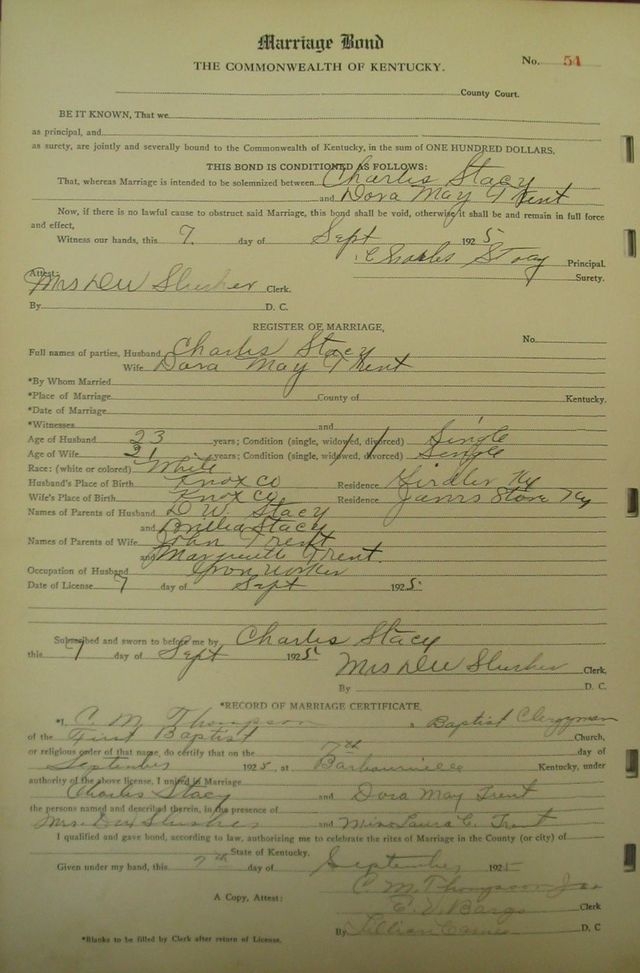 Marriage Bond
No. 51
THE COMMONWEALTH OF KENTUCKY.
County Court.
BE IT KNOWN, That we
as principal, and
as surety, are jointly and severally bound to the Commonwealth of Kentucky, in the sum of ONE HUNDRED DOLLARS.
THIS BOND IS CONDITIONED AS FOLLOWS:
That, whereas Marriage is intended to be solemnized between Charles Stacy
and Dora May Trent
Now, if there is no lawful cause to obstruct said Marriage, this bond shall be void, otherwise it shall be and remain in full force
and effect,
Witness our hands, this 7. day of Sept 1925
Charles Stacy Principal.
Surety.
Attest:
Mrs DW Slusher Clerk.
By D. C.
REGISTER OF MARRIAGE,
No.
Full names of parties, Husband Charles Stacy
Wife Dora May Trent
*By Whom Married
*Place of Marriage County of Kentucky.
*Date of Marriage
*Witnesses and
Age of Husband 23 years; Condition (single, widowed, divorced) Single
Age of Wife 21 years; Condition (single, widowed, divorced) Single
Race: (white or colored) White
Husband's Place of Birth Knox Co Residence Girdler Ky
Wife's Place of Birth Knox Co Residence Store Ky
Names of Parents of Husband D W. Stacy
and Stacy
Names of Parents of Wife John Trent
and Trent.
Occupation of Husband Iron Worker
Date of License 7 day of Sept 1925
Subscribed and sworn to before me by Charles Stacy
this 7 day of Sept 1925
Mrs DW Slusher Clerk,
By D. C.
*RECORD OF MARRIAGE CERTIFICATE,
*I, C. M. Thompson a Baptist Clergyman
of the First Baptist Church,
or religious order of that name, do certify that on the 7th day of
September 1925, at Barbourville Kentucky, under
authority of the above license, I united in Marriage
Charles Stacy and Dora May Trent
the persons named and described therein, in the presence of
Mrs. DW Slusher and Miss Laura C. Trent
I qualified and gave bond, according to law, authorizing me to celebrate the rites of Marriage in the County (or city) of
State of Kentucky.
Given under my hand, this 7th day of September 1925
C. M. Thompson
A Copy, Attest: Clerk
By Lillian D. C
*Blanks to be filled by Clerk after return of License.